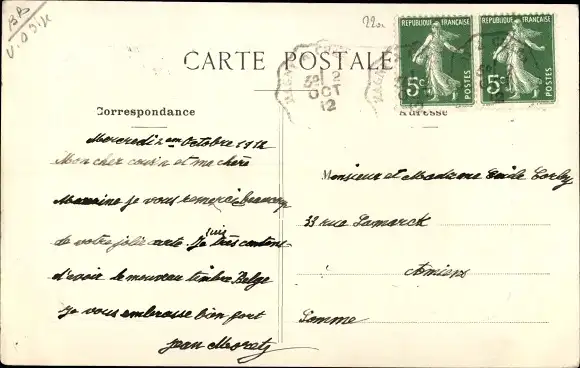 BB
22a
RÉPUBLIQUE FRANÇAISE
RÉPUBLIQUE FRANÇAISE
5c
POSTES
5c
POSTES
CARTE POSTALE
2
OCT
12
Correspondance
Adresse
Mercredi 2 em Octobre 1912
Mon cher cousin et ma chère
Marraine je vous remerci beaucoup
de votre jolie carte. Je suis très contens
d'avoir le nouveau timbre Belge
Je vous embrasse bien fort
Jean
Monsieur et Madame Emile Corby
33 rue Lamarck
Amiens
Somme